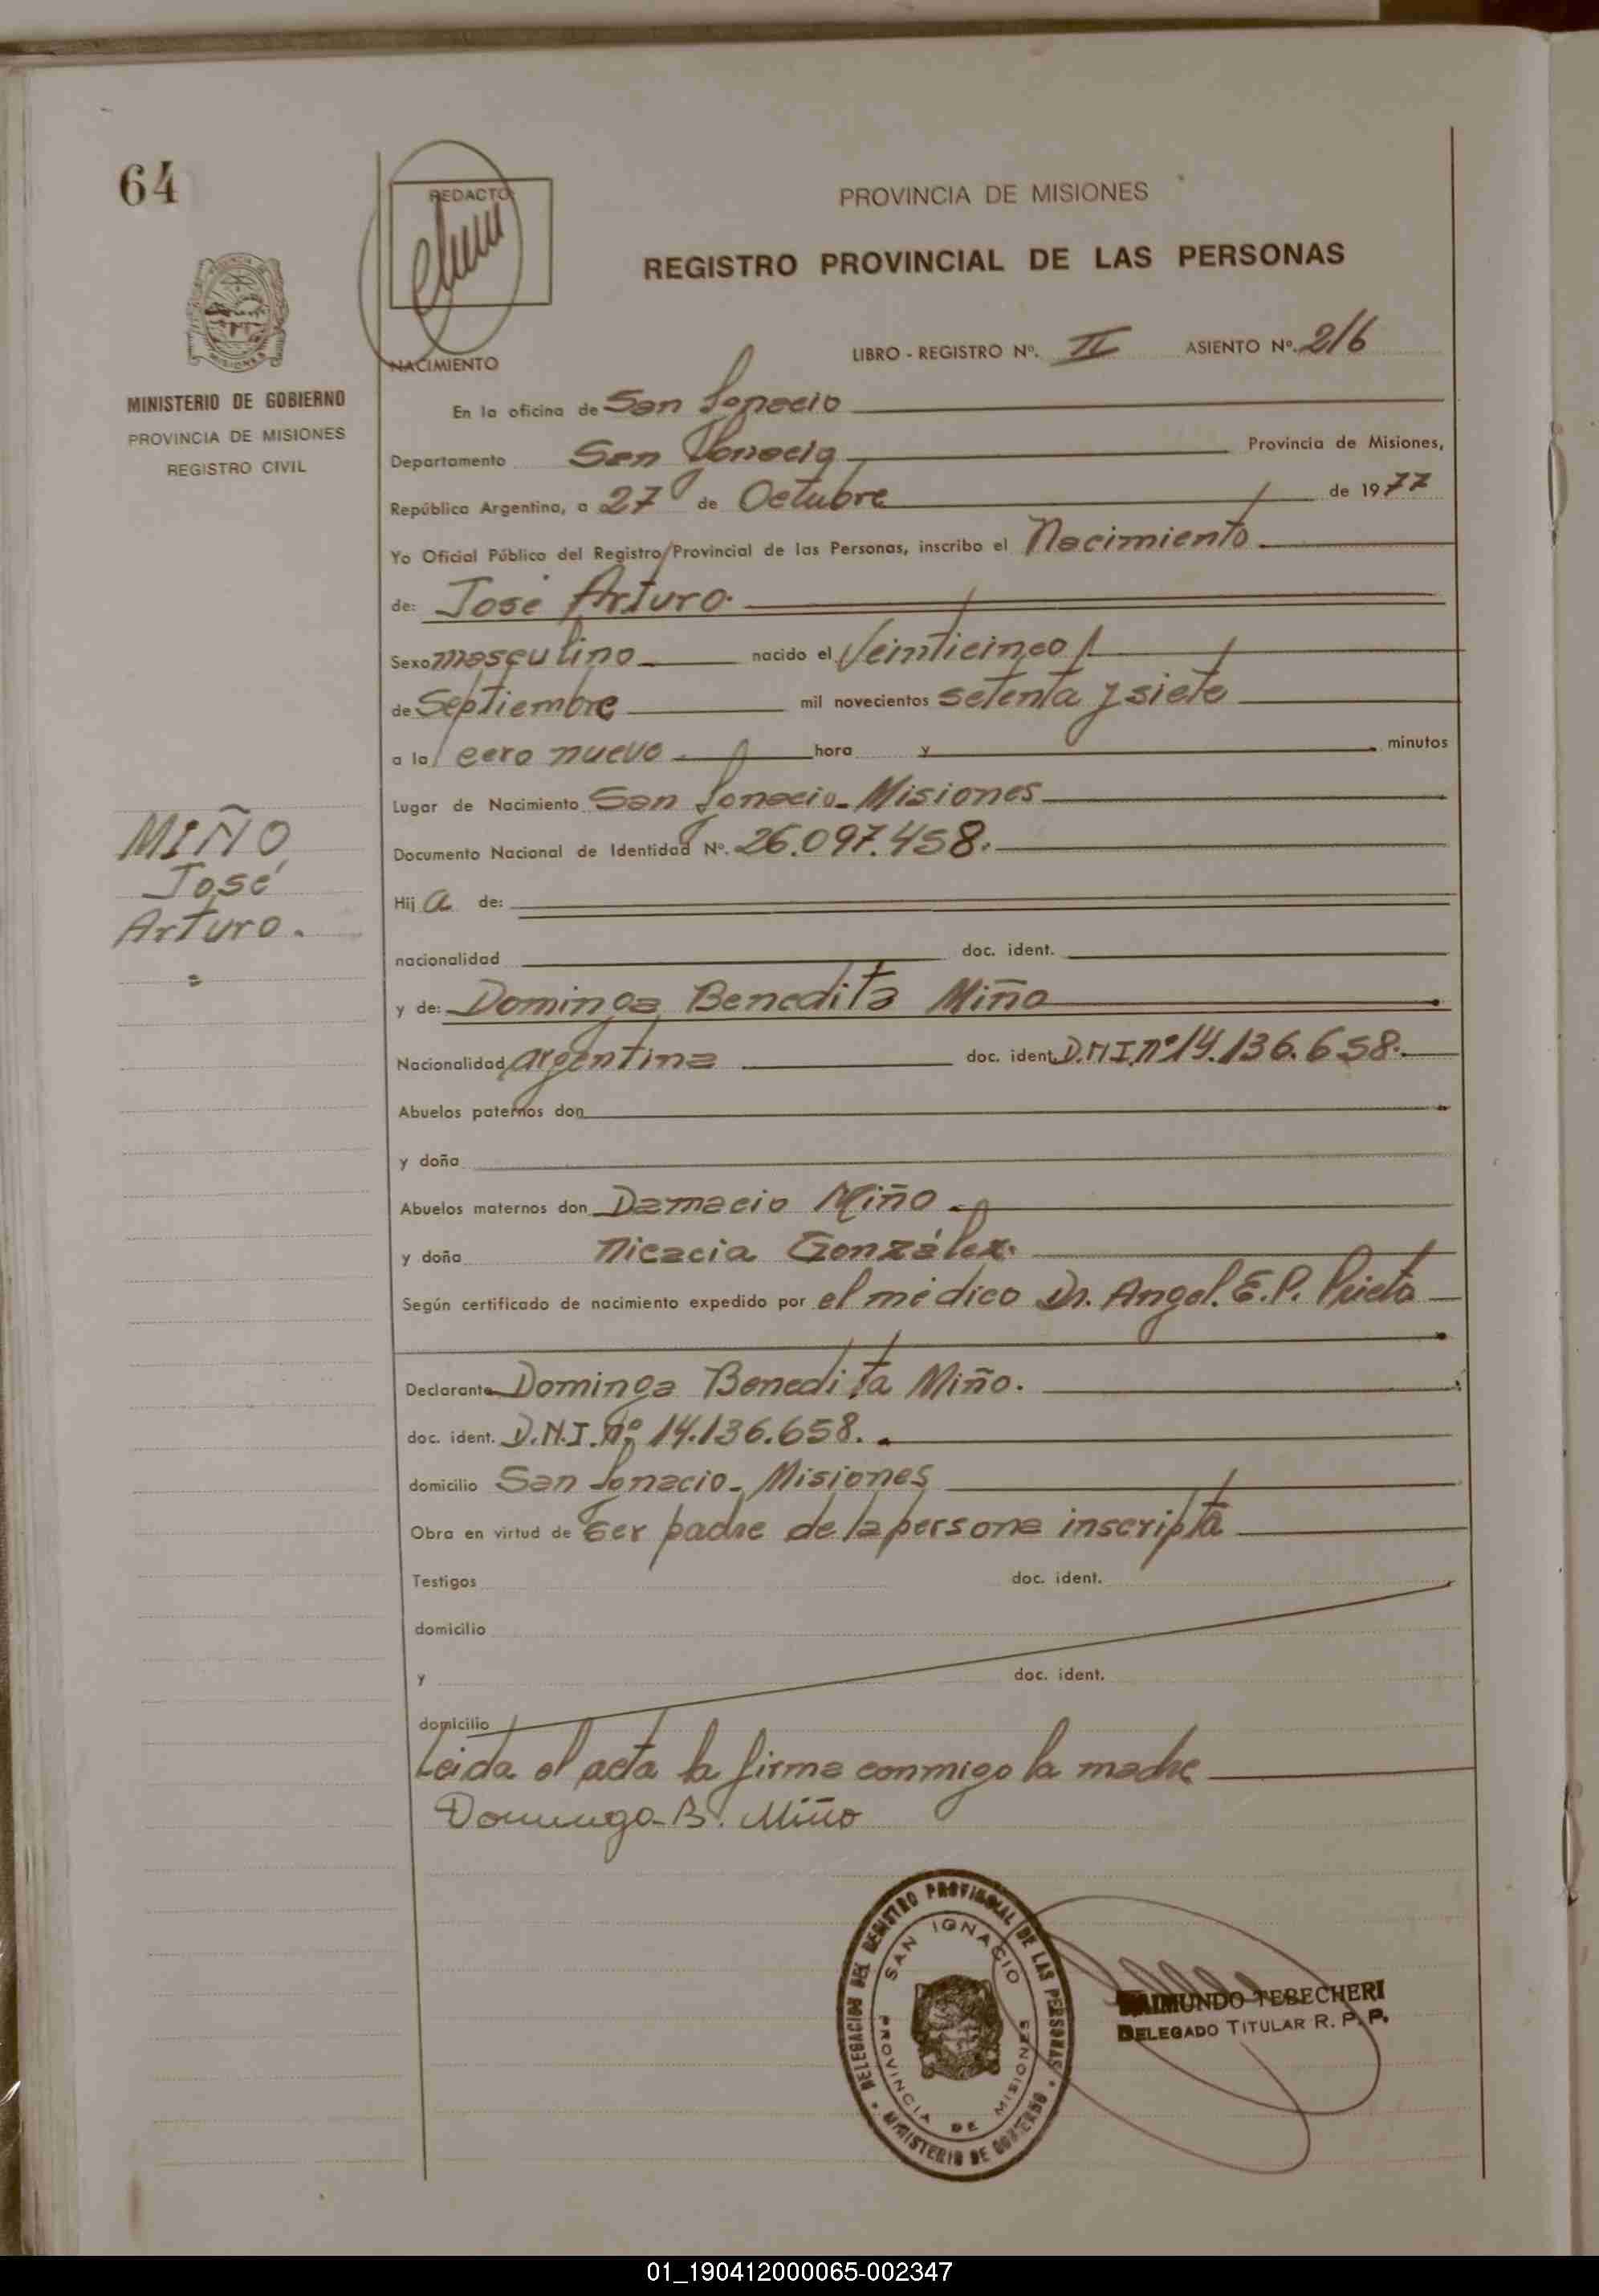 64
REDACTO
PROVINCIA DE MISIONES
REGISTRO PROVINCIAL DE LAS PERSONAS
LIBRO - REGISTRO Nº. II ASIENTO Nº. 216
NACIMIENTO
MINISTERIO DE GOBIERNO
PROVINCIA DE MISIONES
REGISTRO CIVIL
En la oficina de San Ignacio
Departamento San Ignacio Provincia de Misiones,
República Argentina, a 27 de Octubre de 1977
Yo Oficial Público del Registro Provincial de las Personas, inscribo el Nacimiento
de: José Arturo.
Sexo masculino nacido el Veinticinco
de Septiembre mil novecientos setenta y siete
a la cero nueve hora y minutos
Lugar de Nacimiento San Ignacio - Misiones
Documento Nacional de Identidad Nº. 26.097.458.
MIÑO
José
Arturo.
Hij a de:
nacionalidad doc. ident.
y de: Dominga Benedita Miño
Nacionalidad argentina doc. ident. D.N.I. nº 14.136.658.
Abuelos paternos don
y doña
Abuelos maternos don Damacio Miño
y doña Nicacia González.
Según certificado de nacimiento expedido por el médico Dr. Angel. E.P. Prieto
Declarante Dominga Benedita Miño.
doc. ident. D.N.I. nº 14.136.658.
domicilio San Ignacio - Misiones
Obra en virtud de Ser padre de la persona inscripta
Testigos doc. ident.
domicilio
y doc. ident.
domicilio
Leida el acta la firma conmigo la madre
Dominga B. Miño
DELEGACION DEL REGISTRO PROVINCIAL DE LAS PERSONAS
SAN IGNACIO
PROVINCIA DE MISIONES
MINISTERIO DE GOBIERNO
RAIMUNDO TEBECHERI
DELEGADO TITULAR R. P. P.
01_190412000065-002347